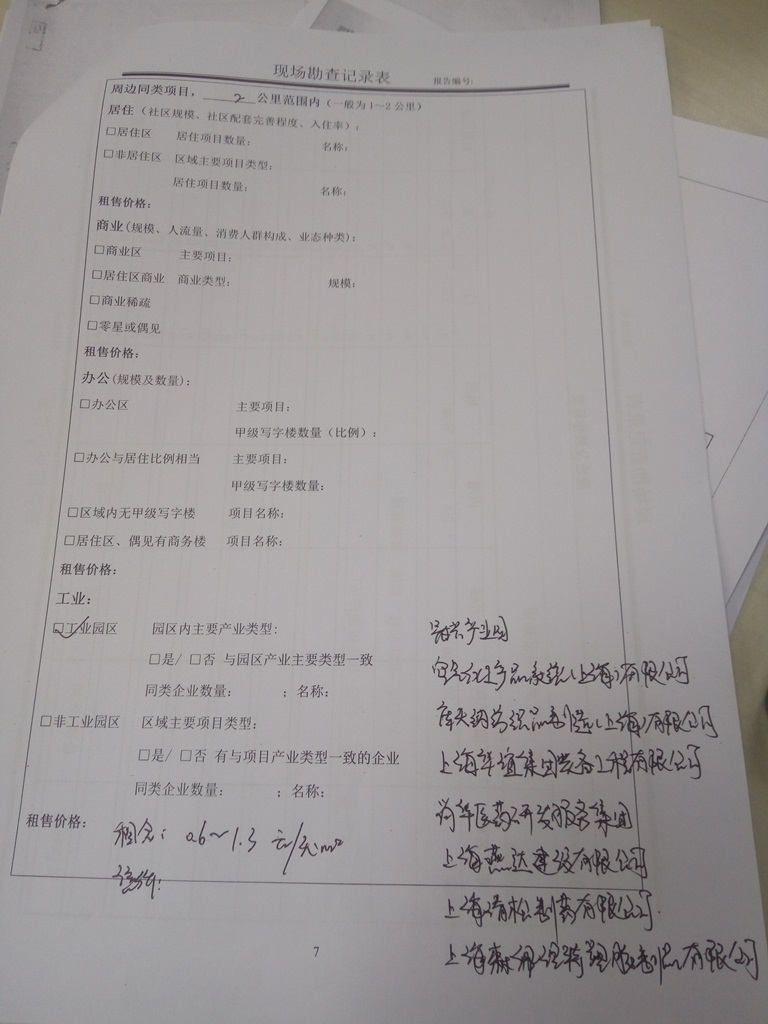 现场勘查记录表 报告编号:
周边同类项目，2公里范围内（一般为1～2公里）
居住（社区规模、社区配套完善程度、入住率）：
□居住区 居住项目数量： 名称：
□非居住区 区域主要项目类型：
居住项目数量： 名称：
租售价格：
商业(规模、人流量、消费人群构成、业态种类)：
□商业区 主要项目：
□居住区商业 商业类型： 规模：
□商业稀疏
□零星或偶见
租售价格：
办公(规模及数量)：
□办公区 主要项目：
甲级写字楼数量（比例）：
□办公与居住比例相当 主要项目：
甲级写字楼数量：
□区域内无甲级写字楼 项目名称：
□居住区、偶见有商务楼 项目名称：
租售价格：
工业：
☑工业园区 园区内主要产业类型:
产业园
□是/ □否 与园区产业主要类型一致
产品系统(上海)有限公司
同类企业数量： ；名称：
□非工业园区 区域主要项目类型：
制造(上海)有限公司
□是/ □否 有与项目产业类型一致的企业
上海华谊集团装备工程有限公司
同类企业数量： ；名称：
医药研发服务集团
租售价格： 租金：0.6～1.3 元/天·m²
上海燕达建设有限公司
上海清松制药有限公司
上海森 有限公司
7